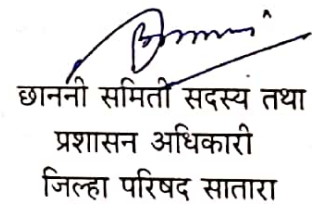 छाननी समिती सदस्य तथा
प्रशासन अधिकारी
जिल्हा परिषद सातारा